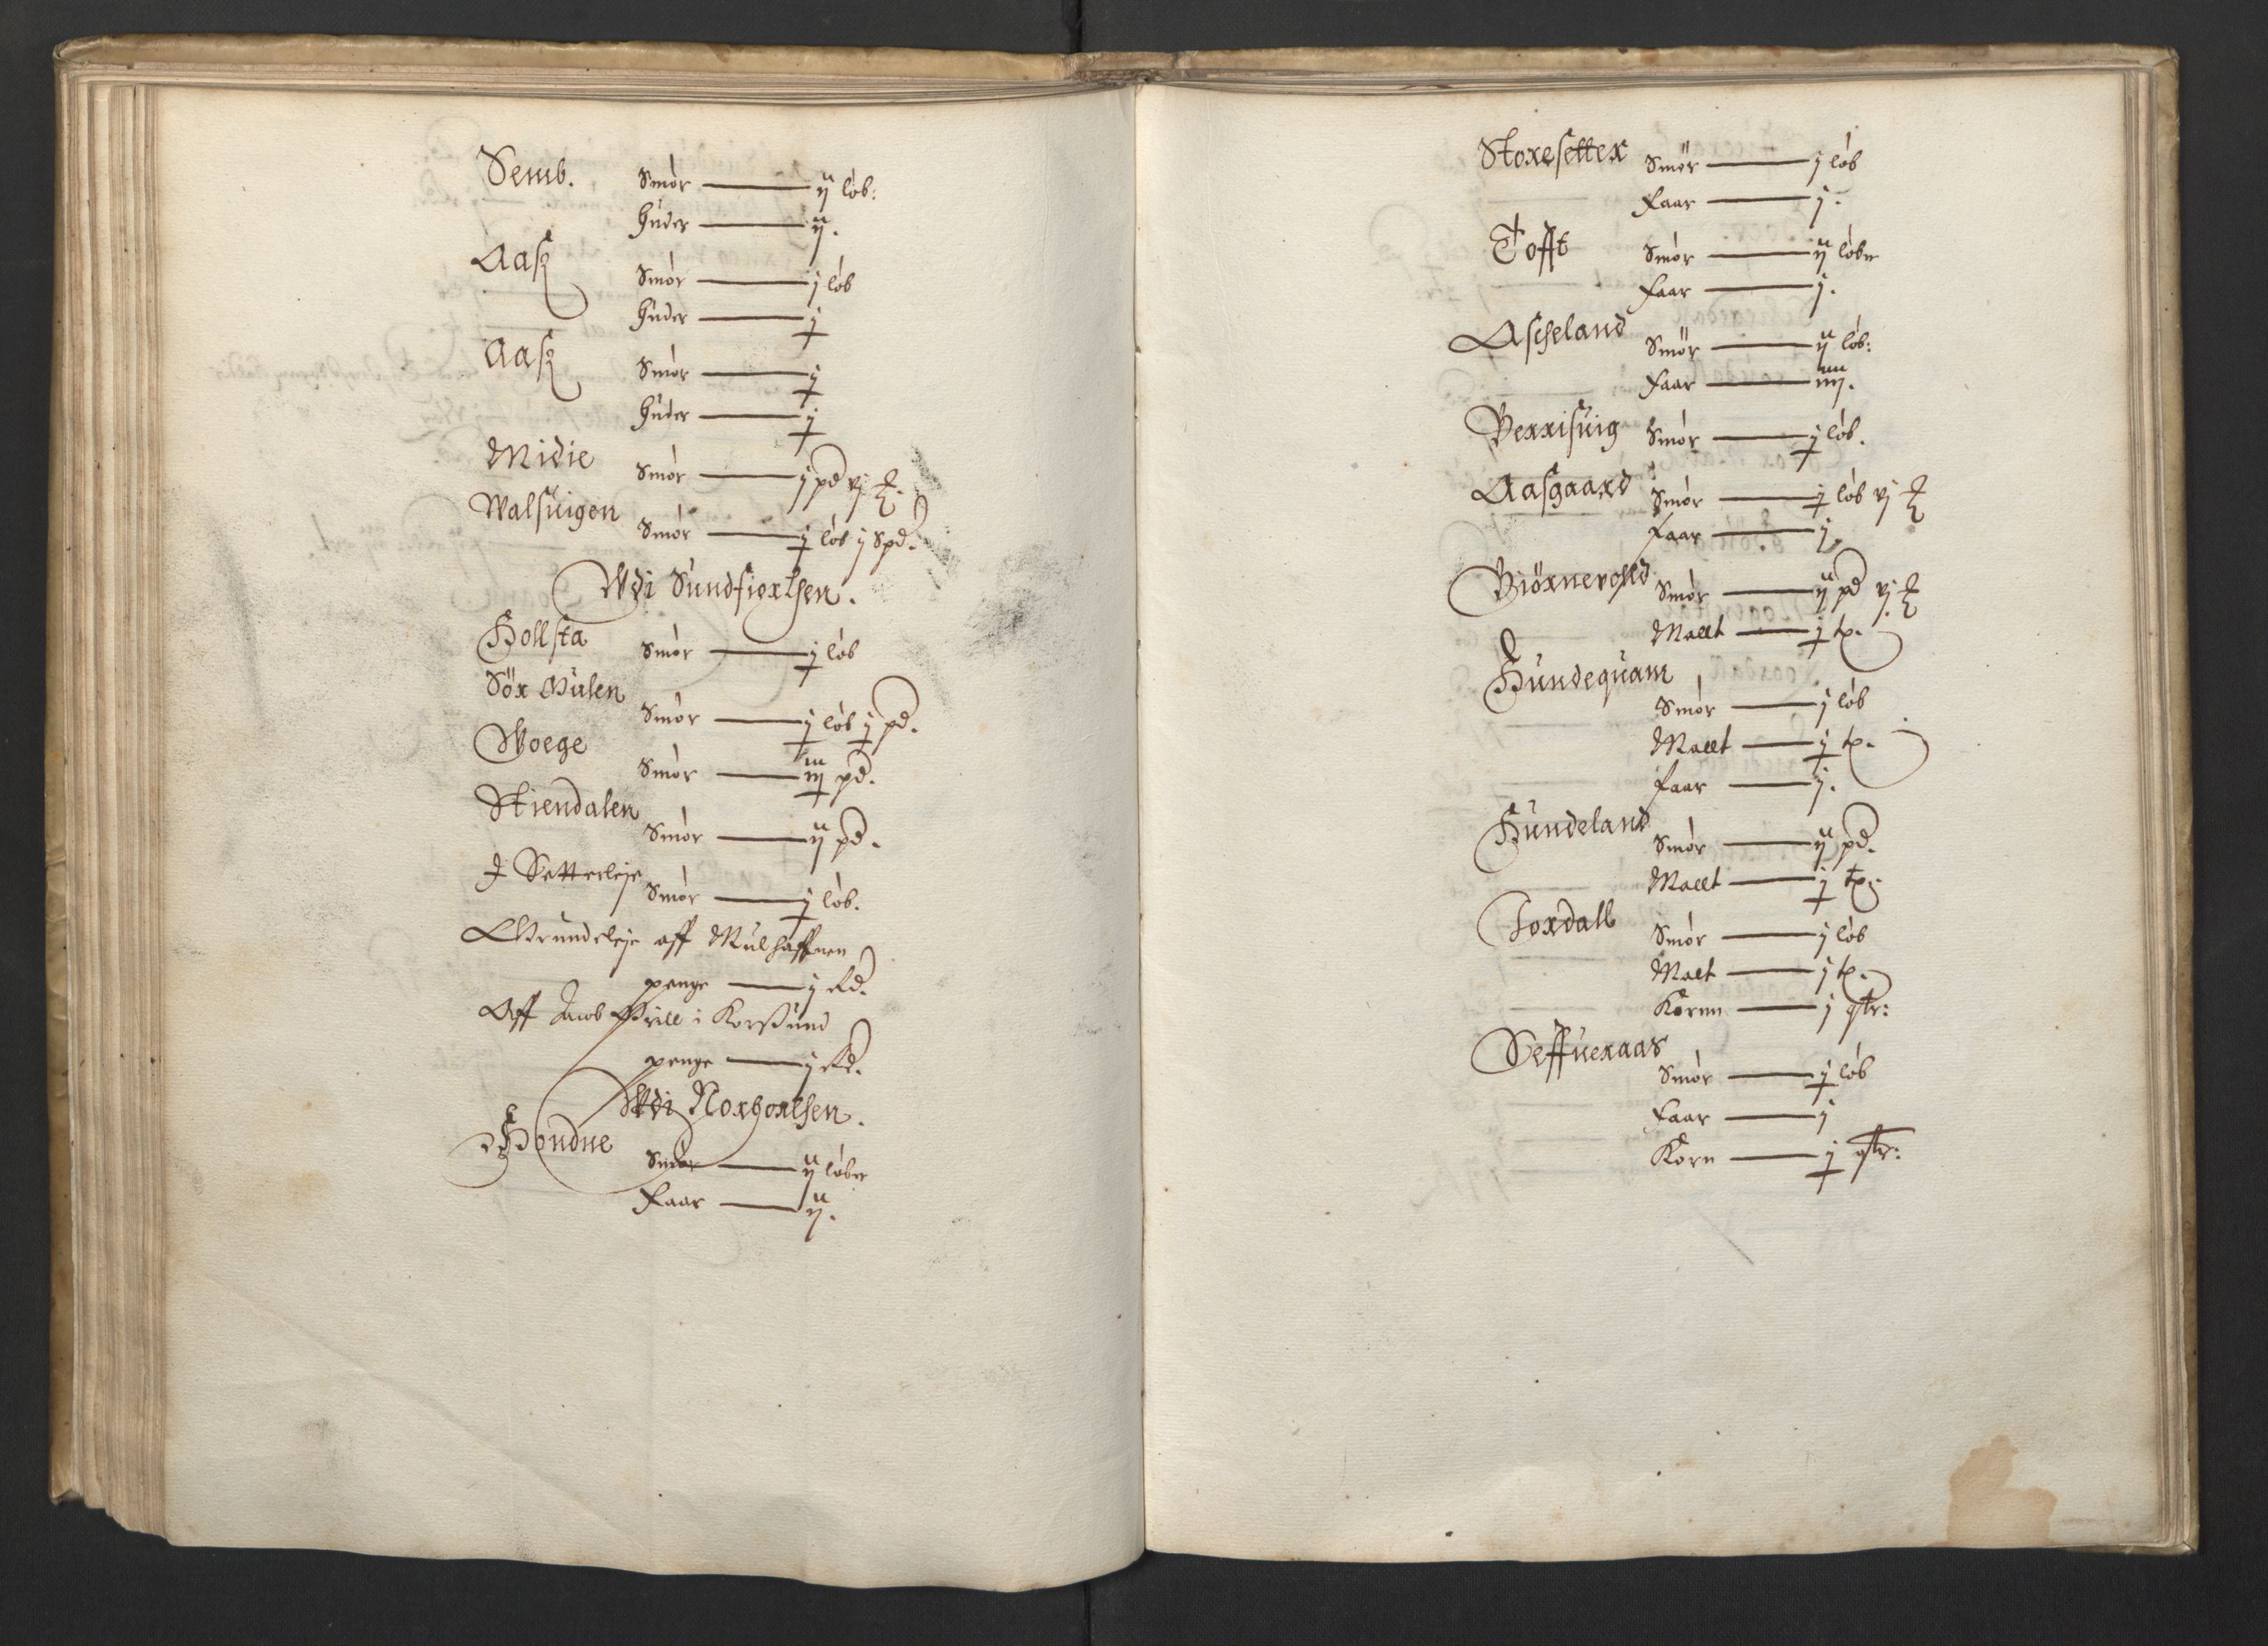 Semb.
Smór —— ij lób:
Huder —— ij.
Aasz
Smór —— j lób
Huder —— j
Aasz
Smór —— j
Huder —— j
Midie
Smór —— j pd vj
Walsuigen
Smór —— j lób j Spd.
Wdi Sundfiorthen.
Hollsta
Smór —— j lób
Sör Gulen
Smór —— j lób j pd.
Woege
Smór —— iij pd.
Stiendalen
Smór —— ij pd.
J Setterleje
Smór —— j lób.
Grundeleje aff Mulhaffnen
penge —— j
Aff Jacob Grill i Korssund
penge —— j
Wdi Norhorlhen.
Hondne
Smór —— ij lóber
Faar —— ij.
Storesetter Smör —— j lób
Faar —— j.
Tofft
Smór —— ij lóber
Faar —— j.
Ascheland
Smör —— ij lób:
Faar —— iiij.
Berrisuig Smór —— j lób.
Aasgaard Smór —— j lób vj
Faar —— j
Biörnevolld Smór —— ij pd vj
Mallt —— j tp.
Hundequam
Smór —— j lób
Mallt —— j tp.
Faar —— j.
Hundeland
Smór —— ij pd.
Mallt —— j tp:
Tordall
Smór —— j lób
Malt —— j tp.
Kornn —— j qtr:
Seffueraas
Smór —— j lób
Faar —— j
Korn —— j qtr: